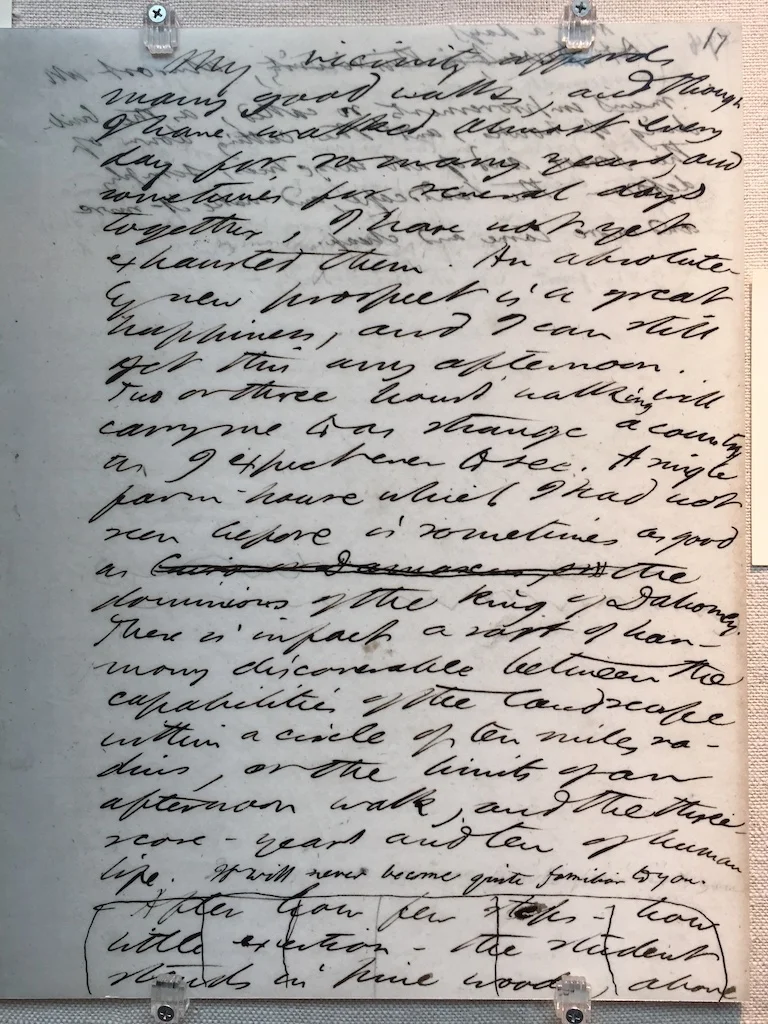 17
My vicinity affords
many good walks, and though
I have walked almost every
day for so many years, and
sometimes for several days
together, I have not yet
exhausted them. An absolute-
ly new prospect is a great
happiness, and I can still
get this any afternoon.
Two or three hours' walking will
carry me to as strange a country
as I expect ever to see. A single
farm-house which I had not
seen before is sometimes as good
as Cairo or Damascus, or the
dominions of the King of Dahomey.
There is in fact a sort of har-
mony discoverable between the
capabilities of the landscape
within a circle of ten miles ra-
dius, or the limits of an
afternoon walk, and the three-
score-years and ten of human
life. It will never become quite familiar to you.
After how few steps - how
little exertion - the student
stands in pine woods, above